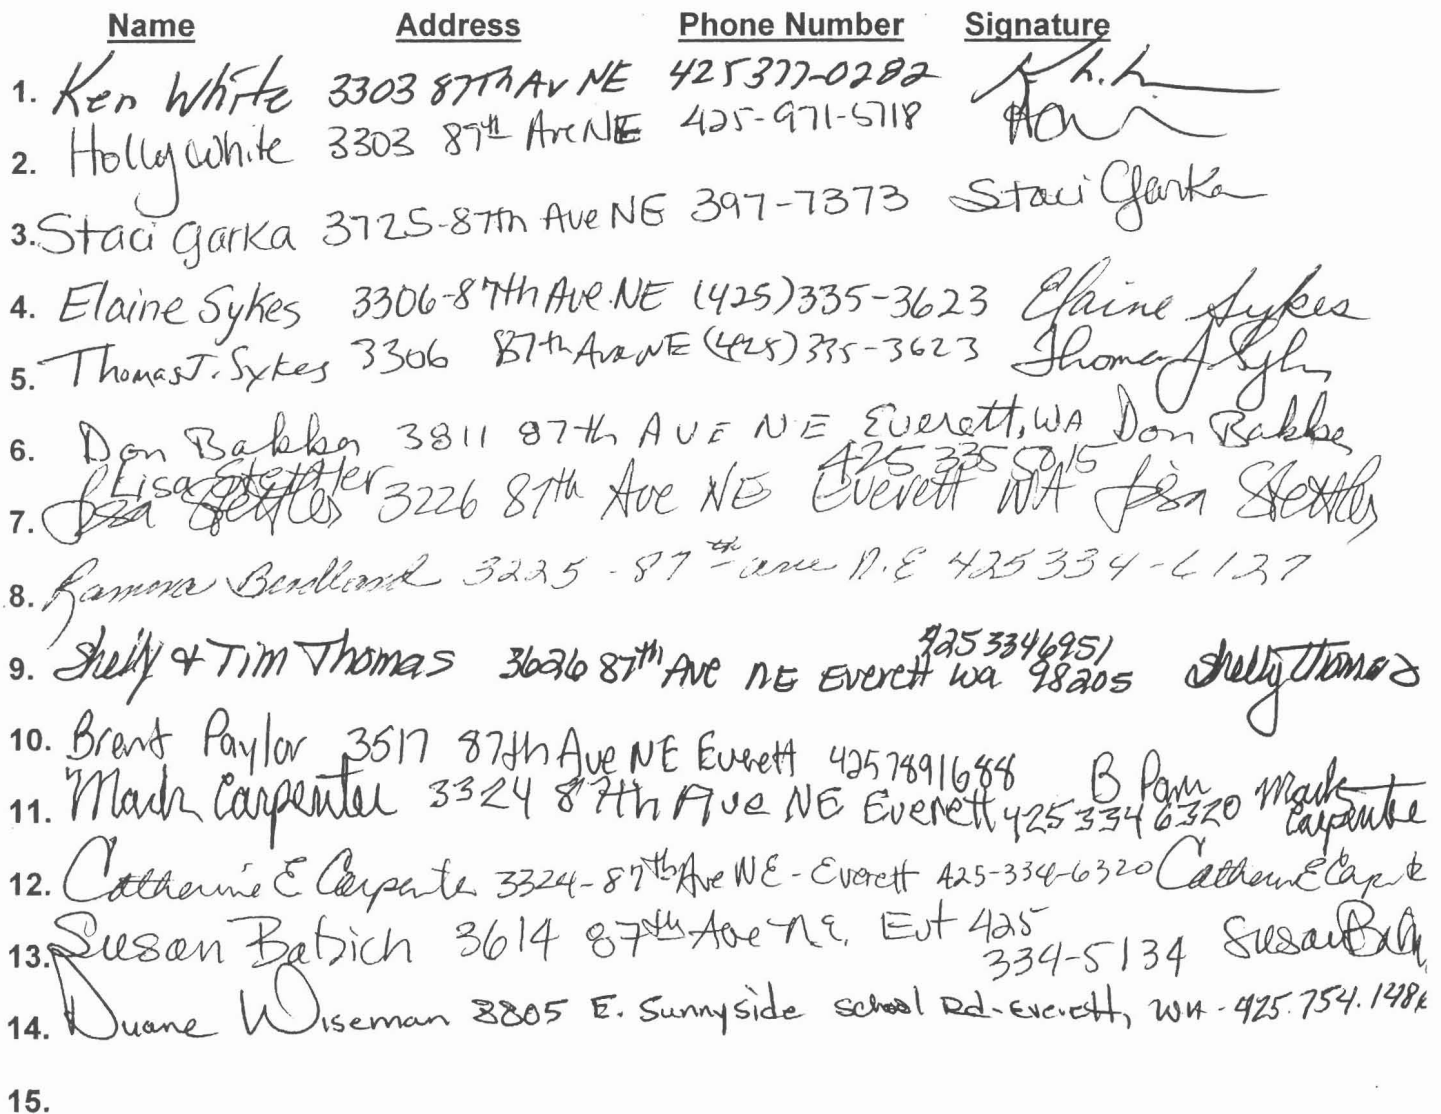 Name Address Phone Number Signature
1. Ken White 3303 87Th Av NE 425377-0282
2. Holly White 3303 87th Ave NE 425-971-5718
3. Staci Garka 3725-87th Ave NE 397-7373 Staci Garka
4. Elaine Sykes 3306-87th Ave. NE (425)335-3623 Elaine Sykes
5. Thomas J. Sykes 3306 87th Ave NE (425)335-3623 Thomas J Sykes
6. Don Bakken 3811 87th AVE NE Everett, WA Don Bakken
425 335 5015
Lisa Stettler
7. Lisa Stettler 3226 87th Ave NE Everett WA Lisa Stettler
8. Ramona 3225-87th ave N.E 425 334-6127
4253346951
9. Shelly & Tim Thomas 3626 87th Ave NE Everett Wa 98205 Shelly Thomas
10. Brent Paylor 3517 87th Ave NE Everett 4257891688
11. Mark Carpenter 3324 87th Ave NE Everett 425 334 6320 Mark Carpenter
12. Catherine E Carpenter 3324-87th Ave NE-Everett 425-334-6320 Catherine E Carpenter
13. Susan Babich 3614 87th Ave N.E. Evt 425 Susan
334-5134
14. Duane Wiseman 8805 E. Sunnyside School Rd-Everett, WA-425.754.148
15.